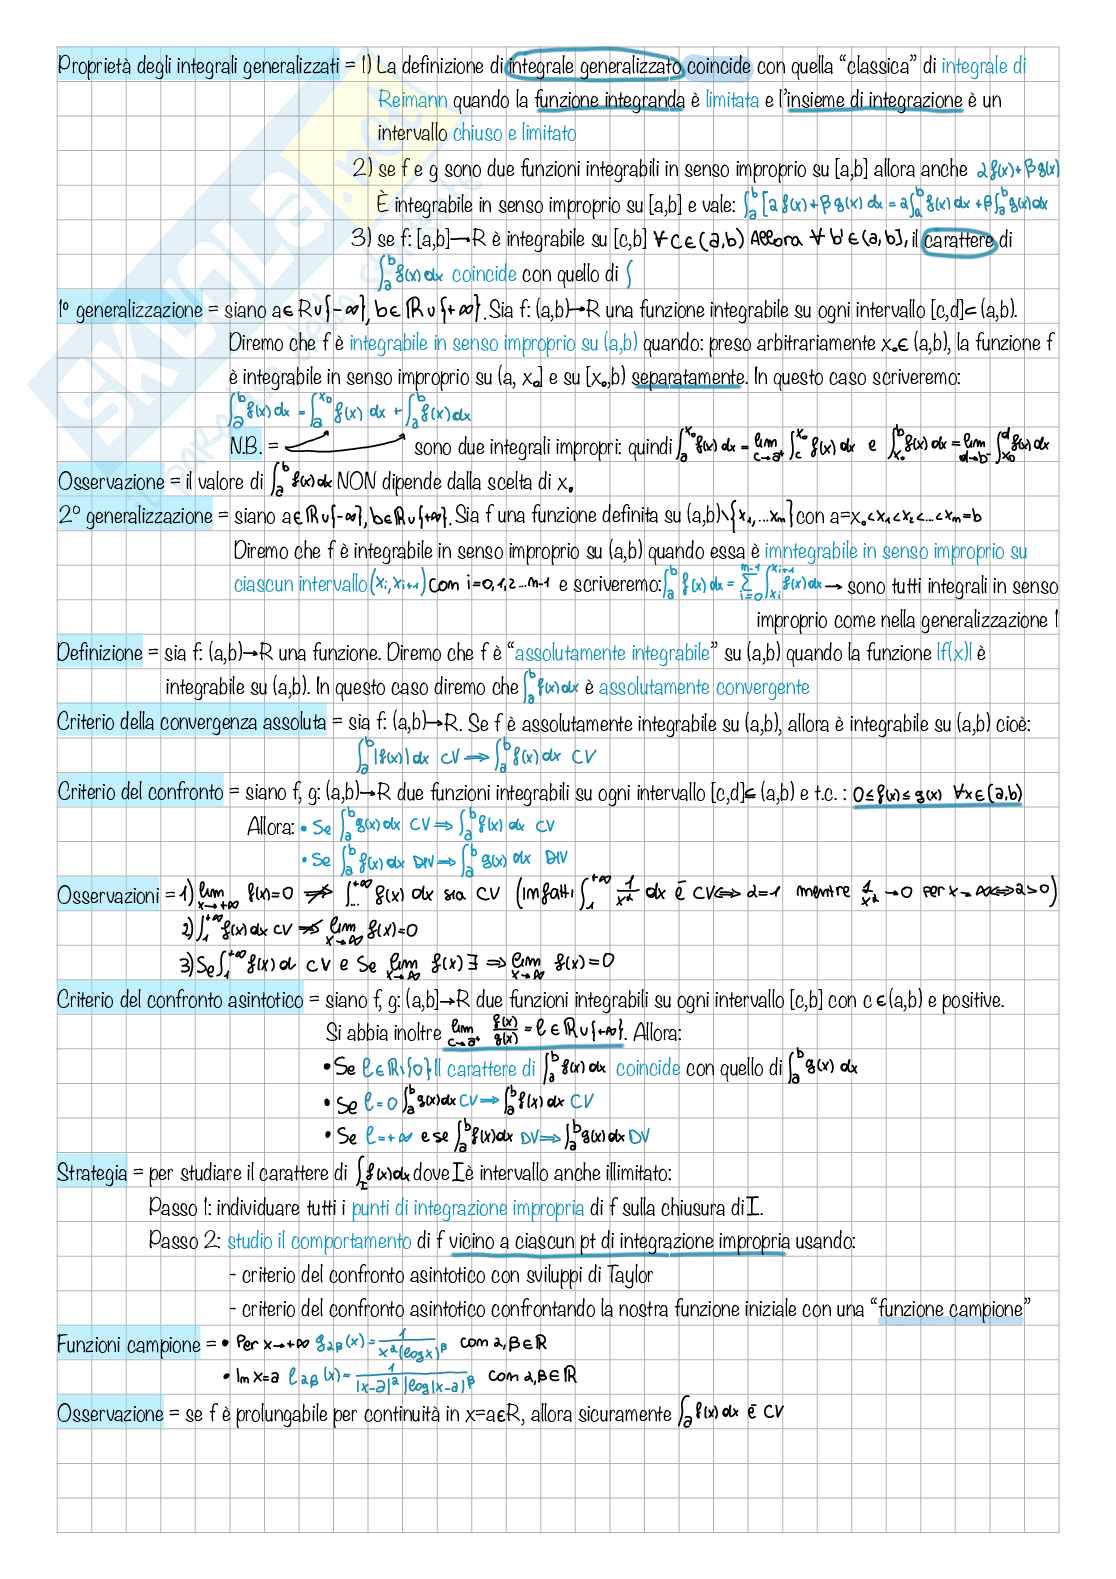 Proprietà degli integrali generalizzati = 1) La definizione di integrale generalizzato coincide con quella “classica” di integrale di
Reimann quando la funzione integranda è limitata e l'insieme di integrazione è un
intervallo chiuso e limitato
2) se f e g sono due funzioni integrabili in senso improprio su [a,b] allora anche αf(x)+βg(x)
È integrabile in senso improprio su [a,b] e vale: ∫_a^b [αf(x)+βg(x) dx = α∫_a^b f(x) dx + β∫_a^b g(x) dx
3) se f: [a,b]→R è integrabile su [c,b] ∀c∈(a,b) Allora ∀b'∈(a,b], il carattere di
∫_a^b f(x) dx coincide con quello di ∫
1° generalizzazione = siano a∈R∪{-∞}, b∈R∪{+∞}. Sia f: (a,b)→R una funzione integrabile su ogni intervallo [c,d]⊂(a,b).
Diremo che f è integrabile in senso improprio su (a,b) quando: preso arbitrariamente x₀∈(a,b), la funzione f
è integrabile in senso improprio su (a, x₀] e su [x₀,b) separatamente. In questo caso scriveremo:
∫_a^b f(x) dx = ∫_a^x₀ f(x) dx + ∫_a^b f(x) dx
N.B. = sono due integrali impropri: quindi ∫_a^x₀ f(x) dx = lim_{c→a⁺} ∫_c^x₀ f(x) dx e ∫_x₀^b f(x) dx = lim_{d→b⁻} ∫_x₀^d f(x) dx
Osservazione = il valore di ∫_a^b f(x) dx NON dipende dalla scelta di x₀
2° generalizzazione = siano a∈R∪{-∞}, b∈R∪{+∞}. Sia f una funzione definita su (a,b)\{x₁,...xₘ} con a=x₀<x₁<x₂<...<xₘ=b
Diremo che f è integrabile in senso improprio su (a,b) quando essa è imntegrabile in senso improprio su
ciascun intervallo (xᵢ,xᵢ₊₁) com i=0,1,2...m-1 e scriveremo: ∫_a^b f(x) dx = ∑_{i=0}^{m-1} ∫_{xᵢ}^{xᵢ₊₁} f(x) dx → sono tutti integrali in senso
improprio come nella generalizzazione 1
Definizione = sia f: (a,b)→R una funzione. Diremo che f è “assolutamente integrabile” su (a,b) quando la funzione |f(x)| è
integrabile su (a,b). In questo caso diremo che ∫_a^b f(x) dx è assolutamente convergente
Criterio della convergenza assoluta = sia f: (a,b)→R. Se f è assolutamente integrabile su (a,b), allora è integrabile su (a,b) cioè:
∫_a^b |f(x)| dx CV ⟹ ∫_a^b f(x) dx CV
Criterio del confronto = siano f, g: (a,b)→R due funzioni integrabili su ogni intervallo [c,d]⊆(a,b) e t.c. : 0≤f(x)≤g(x) ∀x∈(a,b)
Allora: • Se ∫_a^b g(x) dx CV ⟹ ∫_a^b f(x) dx CV
• Se ∫_a^b f(x) dx DIV ⟹ ∫_a^b g(x) dx DIV
Osservazioni = 1) lim_{x→+∞} f(x)=0 ⇏ ∫_{...}^{+∞} f(x) dx sia CV (Imfatti ∫_1^{+∞} 1/x^α dx è CV ⟺ α=1 mentre 1/x^α →0 per x→∞ ⟺ α>0)
2) ∫_1^{+∞} f(x) dx CV ⇏ lim_{x→∞} f(x)=0
3) Se ∫_1^{+∞} f(x) d CV e Se lim_{x→∞} f(x) ∃ ⟹ lim_{x→∞} f(x)=0
Criterio del confronto asintotico = siano f, g: (a,b]→R due funzioni integrabili su ogni intervallo [c,b] con c∈(a,b) e positive.
Si abbia inoltre lim_{c→a⁺} f(x)/g(x) = ℓ∈R∪{+∞}. Allora:
• Se ℓ∈R\{0} Il carattere di ∫_a^b f(x) dx coincide con quello di ∫_a^b g(x) dx
• Se ℓ=0 ∫_a^b g(x) dx CV ⟹ ∫_a^b f(x) dx CV
• Se ℓ=+∞ e se ∫_a^b f(x) dx DV ⟹ ∫_a^b g(x) dx DV
Strategia = per studiare il carattere di ∫_I f(x) dx dove I è intervallo anche illimitato:
Passo 1: individuare tutti i punti di integrazione impropria di f sulla chiusura di I.
Passo 2: studio il comportamento di f vicino a ciascun pt di integrazione impropria usando:
- criterio del confronto asintotico con sviluppi di Taylor
- criterio del confronto asintotico confrontando la nostra funzione iniziale con una “funzione campione”
Funzioni campione = • Per x→+∞ g_{αβ}(x) = 1/(x^α(log x)^β) com α,β∈R
• Im x=a ℓ_{αβ}(x) = 1/(|x-a|^α |log|x-a|^β) com α,β∈R
Osservazione = se f è prolungabile per continuità in x=a∈R, allora sicuramente ∫_a f(x) dx è CV